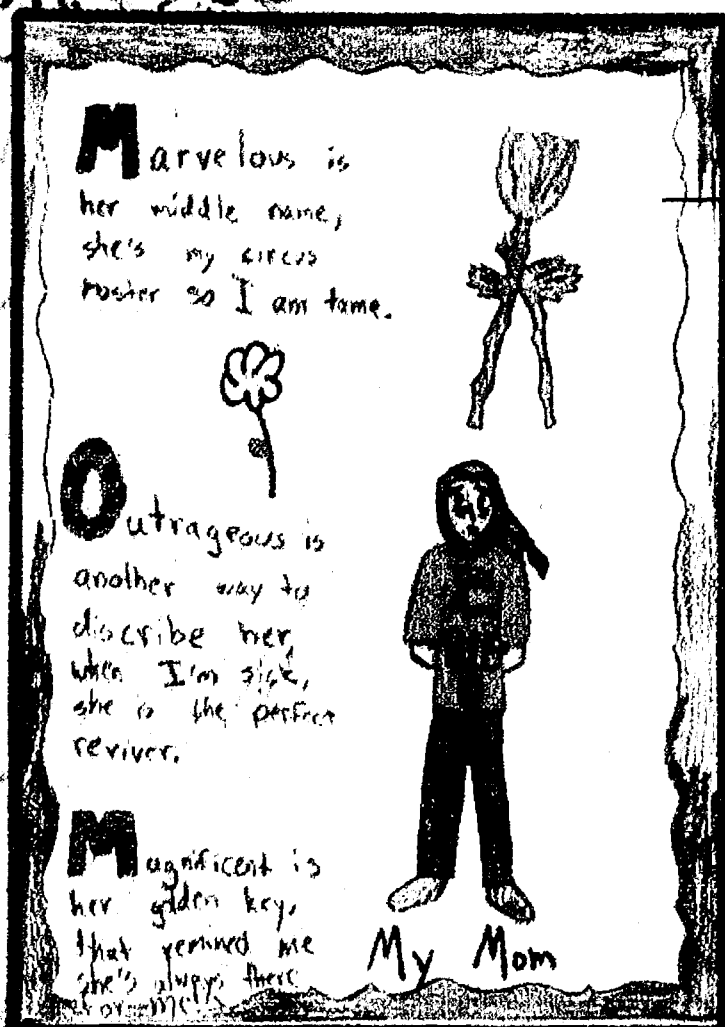 Marvelous is
her middle name,
she's my circus
master so I am tame.
Outrageous is
another way to
discribe her,
when I'm sick,
she is the perfect
reviver.
Magnificent is
her golden key,
that remined me
she's always there
for me!
My Mom